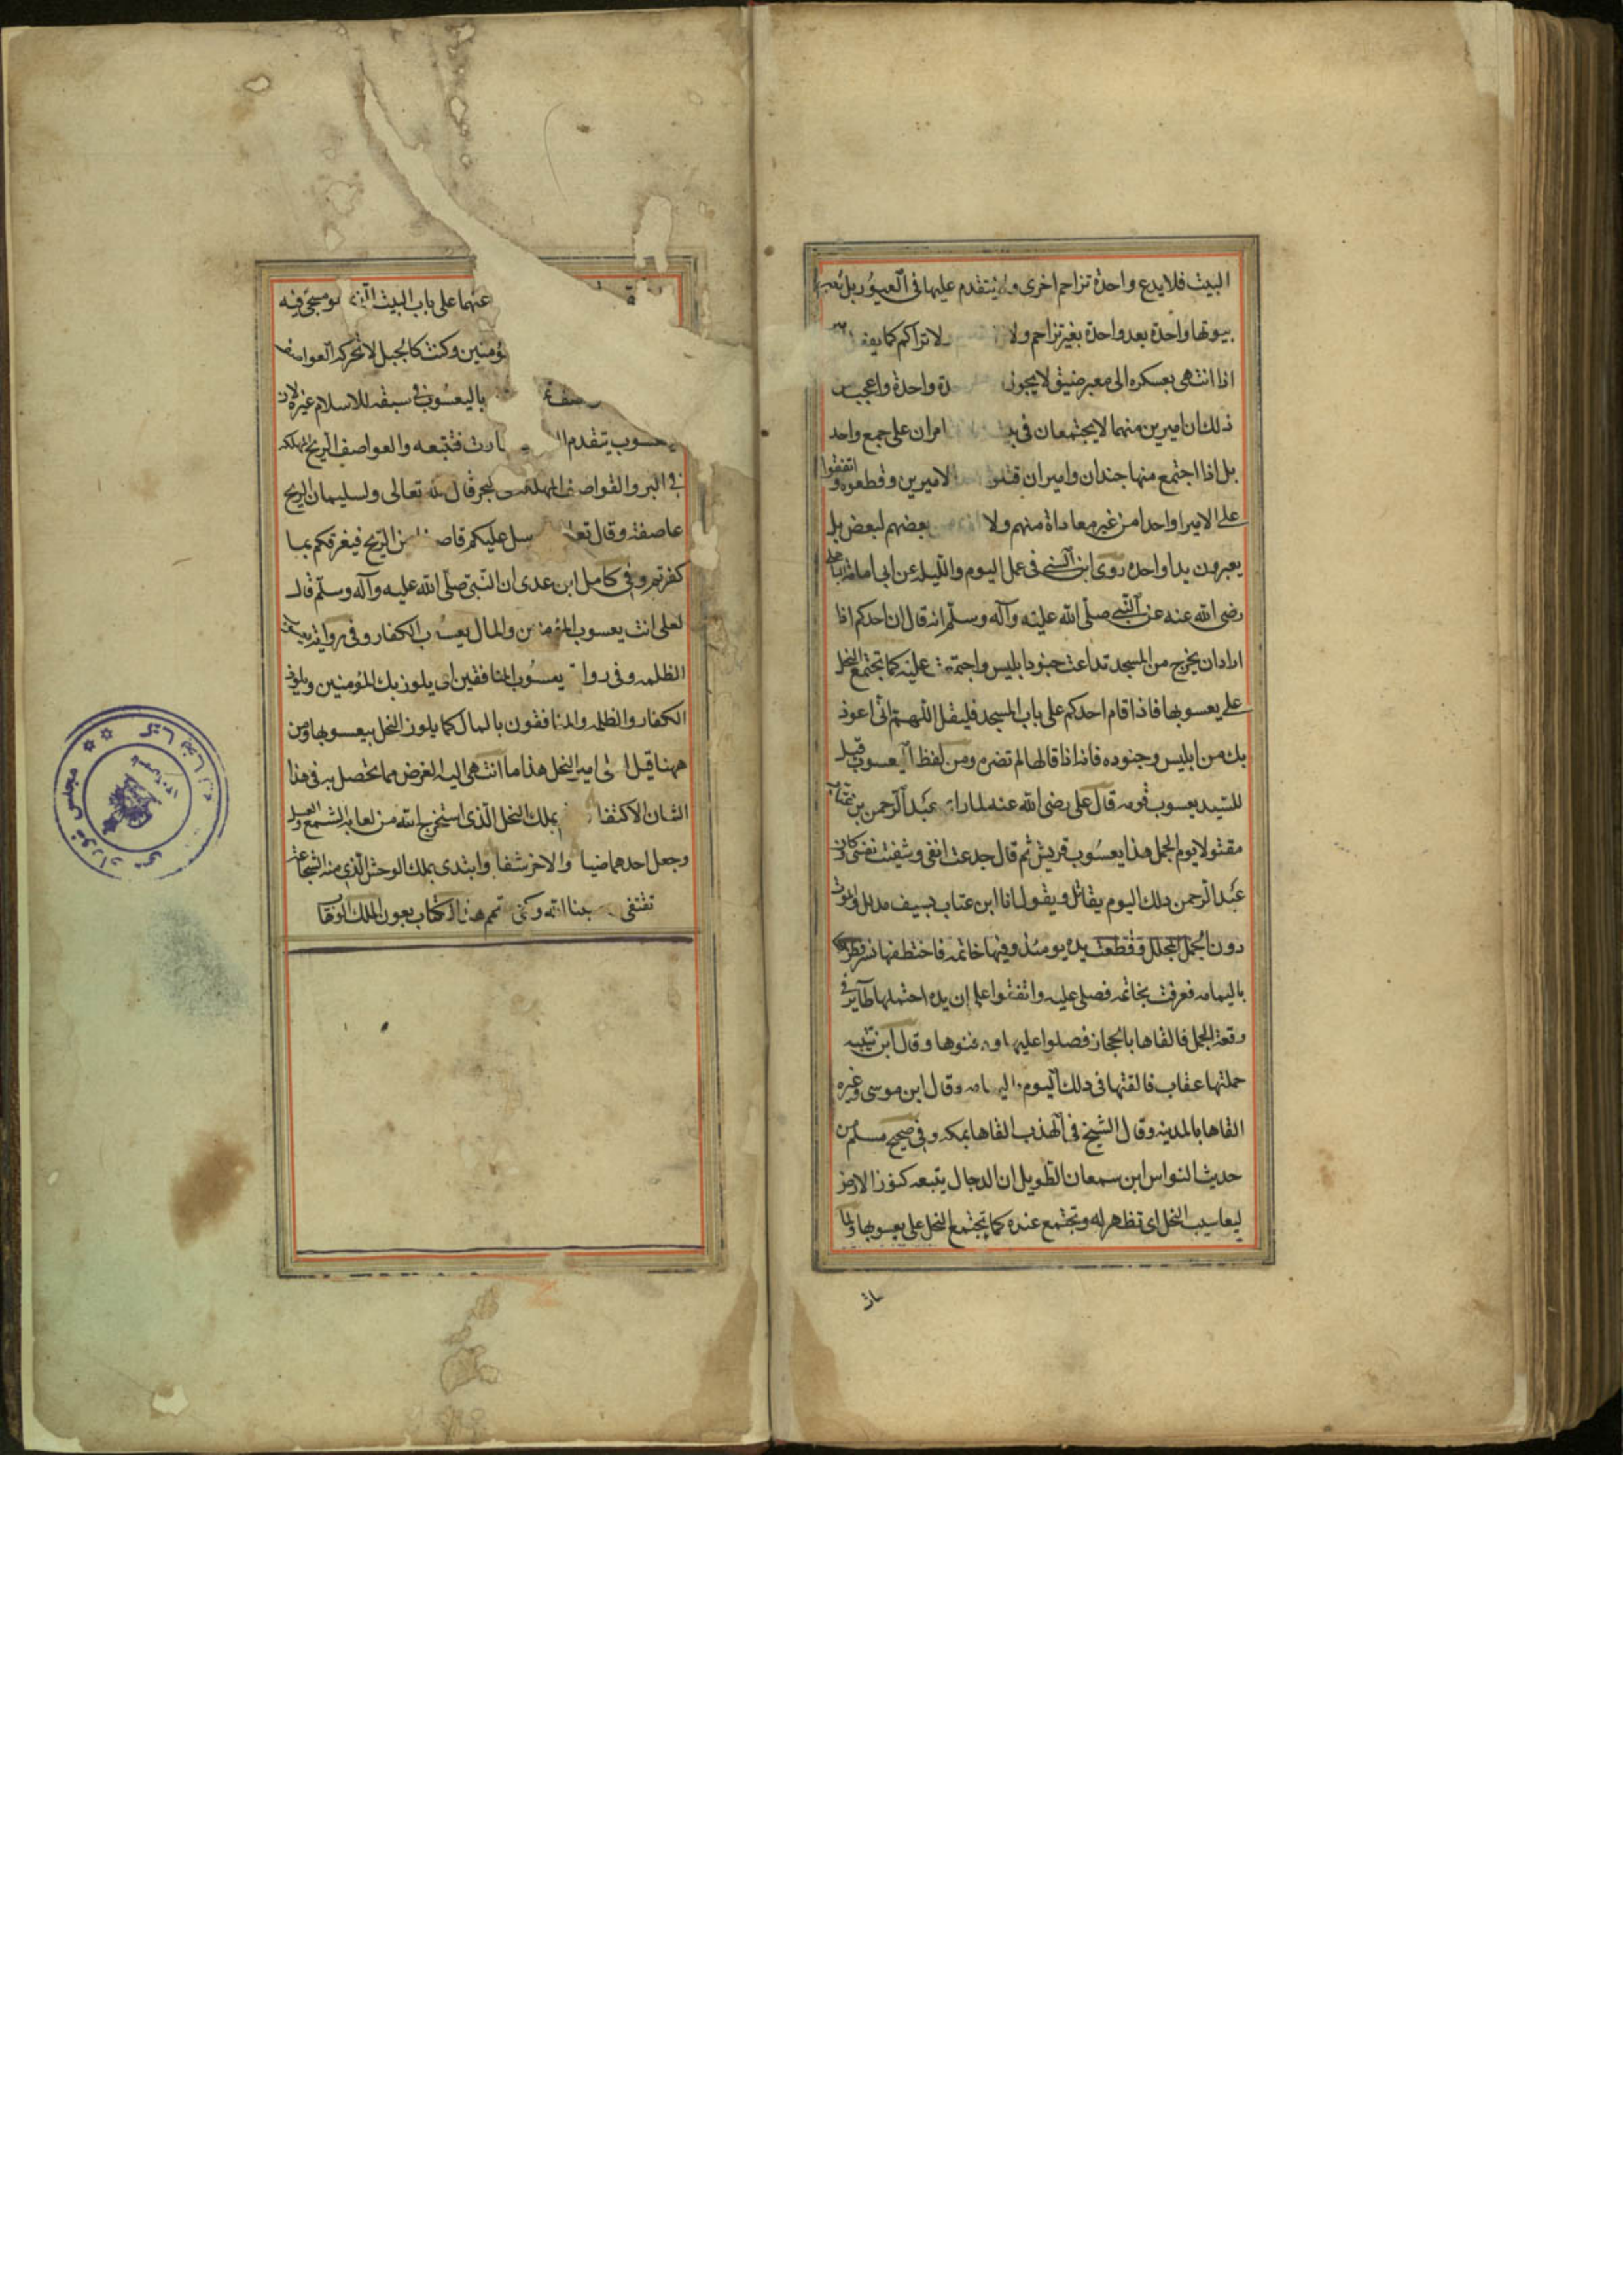 البيت فلا يدع واحدة تزاحم اخرى ولا يتقدم عليها في العبور بل تعبر
بيوتها واحدة بعد واحدة بغير تزاحم ولا ولا تراكم كما يفعل
اذا انتهى بعسكره الى معبر ضيق لا يجوزه واحدة واعجب من
ذلك ان اميرين منهما لا يجتمعان في امران على جمع واحد
بل اذا اجتمع منها جندان واميران قتلوا الاميرين وقطعوه واتفقوا
على الامير واحدا من غير معاداة منهم ولا بعضهم لبعض بل
يعيرون يدا واحده روى ابن السنى فى عمل اليوم والليله عن ابى امامة الباهلى
رضى الله عنه عن النبي صلّى الله عليه وآله وسلّم انه قال ان احدكم اذا
اراد ان يخرج من المسجد تداعت جنود ابليس واجتمعت عليه كما تجتمع النحل
على يعسوبها فاذا قام احدكم على باب المسجد فليقل اللهم انى اعوذ
بك من ابليس وجنوده فانه اذا قالها لم تضره ومن لفظ اليعسوب قيل
للسّيد يعسوب قومه قال على رضى الله عنه لما راى عبد الرحمن بن عتاب
مقتولا يوم الجمل هذا يعسوب قريش ثم قال جدعت انفى وشفيت نفسى كان
عبد الرحمن ذلك اليوم يقاتل ويقول انا ابن عتاب وسيف مدلل والموت
دون الجمل المجلل وقطعت يده يومئذ وفيها خاتمه فاختطفها نسر فطرحها
باليمامه فعرفت بخاتمه فصلى عليه واتفقوا على ان يده احتملها طاير في
وقعة الجمل فالقاها بالحجاز فصلوا عليها ودفنوها وقال ابن قتيبه
حملتها عقاب فالقتها فى ذلك اليوم باليمامه وقال ابن موسى وغيره
القاها بالمدينه وقال الشيخ فى المهذب القاها بمكه وفى صحيح مسلم من
حديث النواس ابن سمعان الطويل ان الدجال يتبعه كنوز الارض
ليعاسيب النحل اى تظهر له وتجتمع عنده كما تجتمع النحل على يعسوبها ولما
عنهما على باب البيت الذى هو مسجى فيه
المؤمنين وكنت كالجبل لا تحركه العواصف
باليعسوب فى سبقه للاسلام غيره لان
اليعسوب يتقدم فتتبعه والعواصف الريح المهلكه
فى البر والقواصف المهلكه فى البحر قال الله تعالى ولسليمان الريح
عاصفة وقال تعالى فيرسل عليكم قاصفا من الريح فيغرقكم بما
كفرتم وفى كامل ابن عدى ان النّبى صلّى الله عليه وآله وسلّم قال
لعلى انت يعسوب المؤمنين والمال يعسوب الكفار وفى رواية يعسوب
الظلمه وفى رواية يعسوب المنافقين اى يلوز بك المؤمنين ويلوذ
الكفار والظلمه والمنافقون بالمال كما يلوز النحل بيعسوبها ومن
ههنا قيل لعلى امير النحل هذا ما انتهى اليه الغرض مما يحصل به فى هذا
الشان الاكتفا بملك النحل الّذى استخرج الله من لعابه الشمع والعسل
وجعل احدهما ضيا والاخر شفا وابتدى بملك الوحش الّذى منه الشجاعة
تقتفى حسبنا الله وكفى تمم هذا الكتاب بعون الملك الوهاب